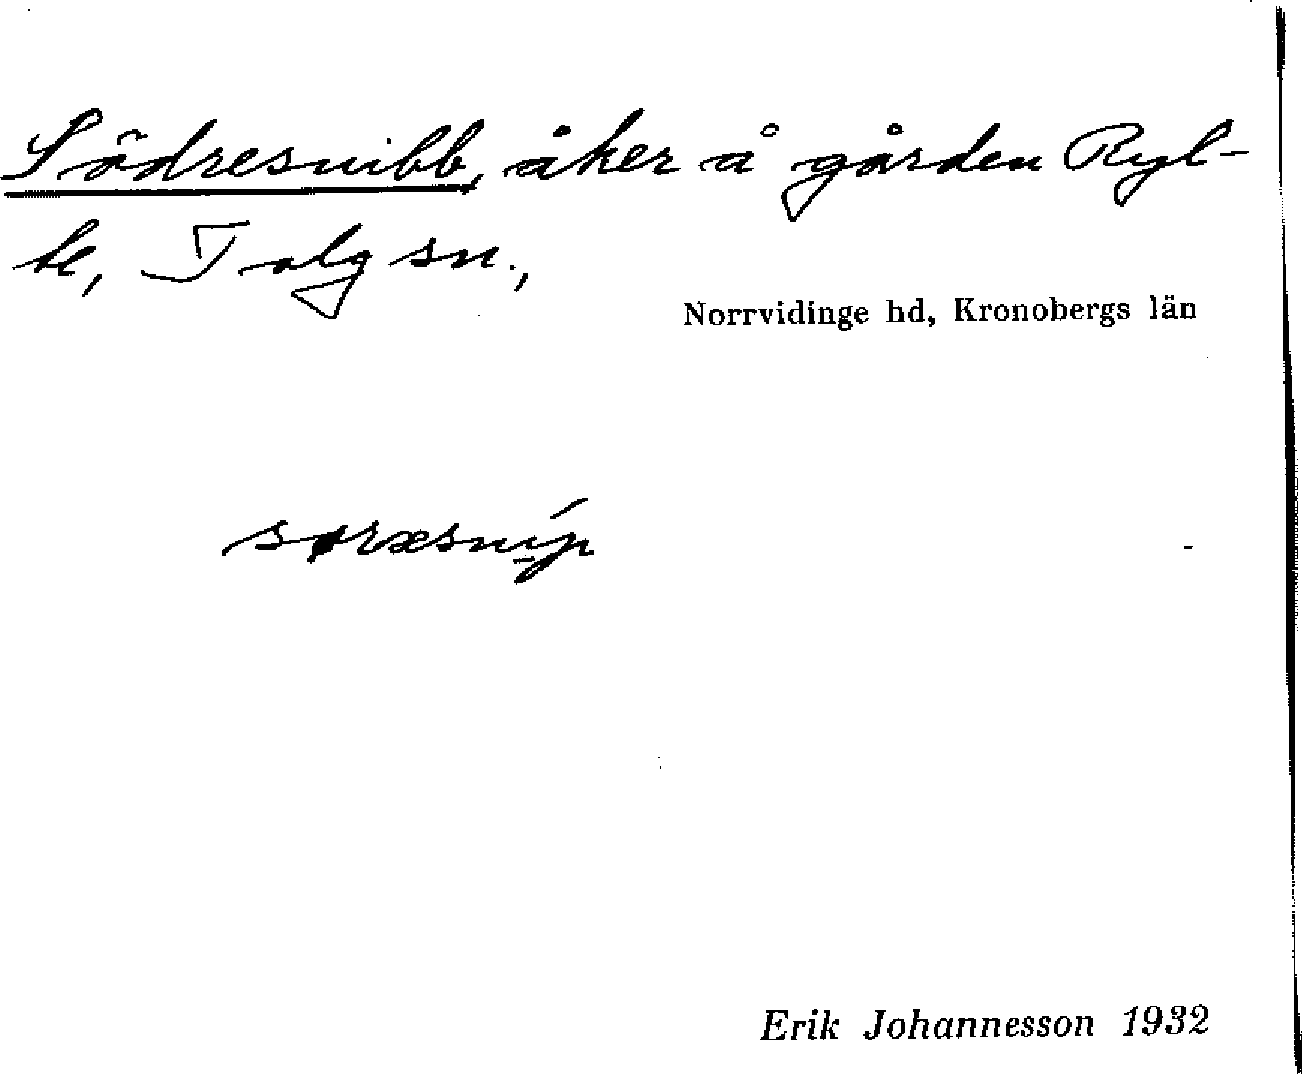 Södresnibb, åker å gården Ryl-
ke, Tolg sn.,
Norrvidinge hd, Kronobergs län
særæsnip
Erik Johannesson 1932